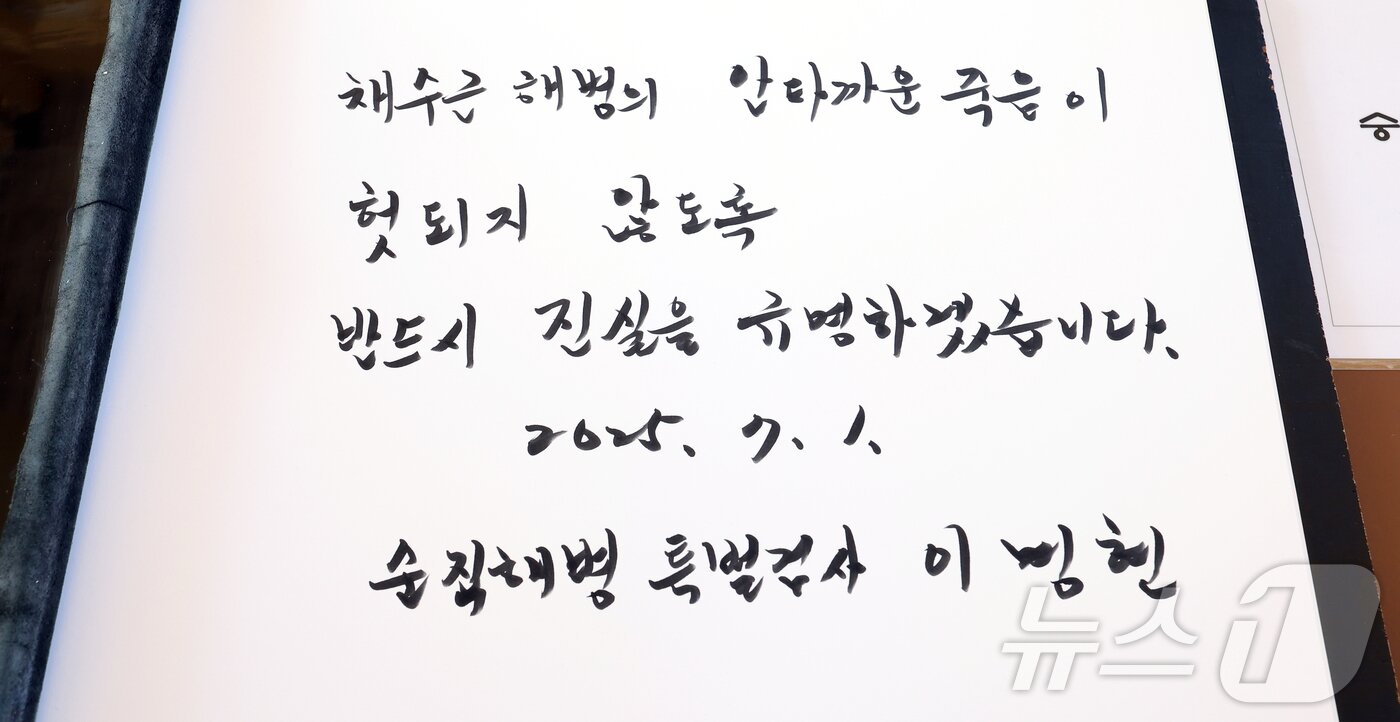 채수근 해병의 안타까운 죽음이
헛되지 않도록
반드시 진실을 규명하겠습니다.
2025. 7. 1.
순직해병 특별검사 이명현
승
뉴스1